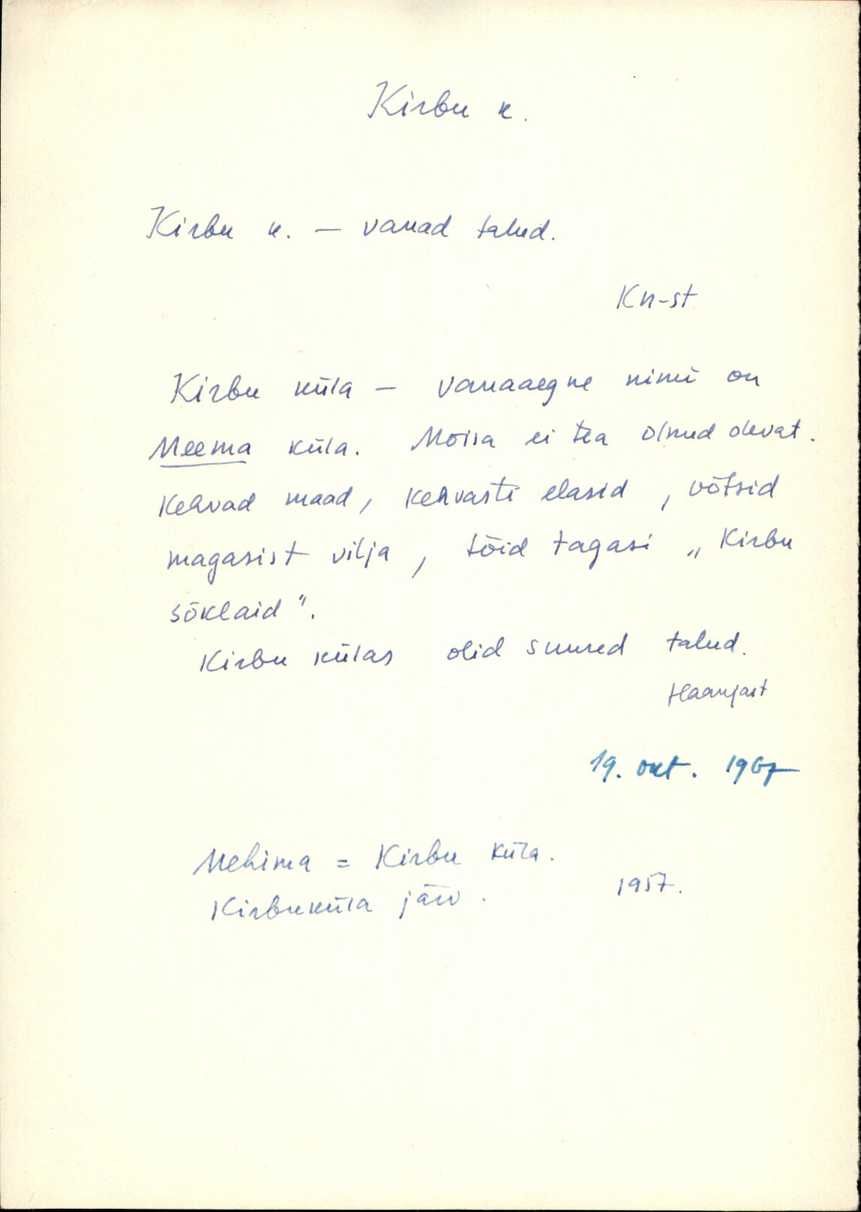 Kirbu k.
Kirbu k. – vanad talud.
Kn-st
Kirbu küla – vanaaegne nimi on
Meema küla. Moisa ei tea olnud olevat.
Kehvad maad, kehvasti elasid, võtsid
magasist vilja, tõid tagasi „Kirbu
sõklaid".
Kirbu külas olid suured talud.
Haanjast
19. okt. 1967
Mehima = Kirbu küla.
Kirbuküla järv. 1957.